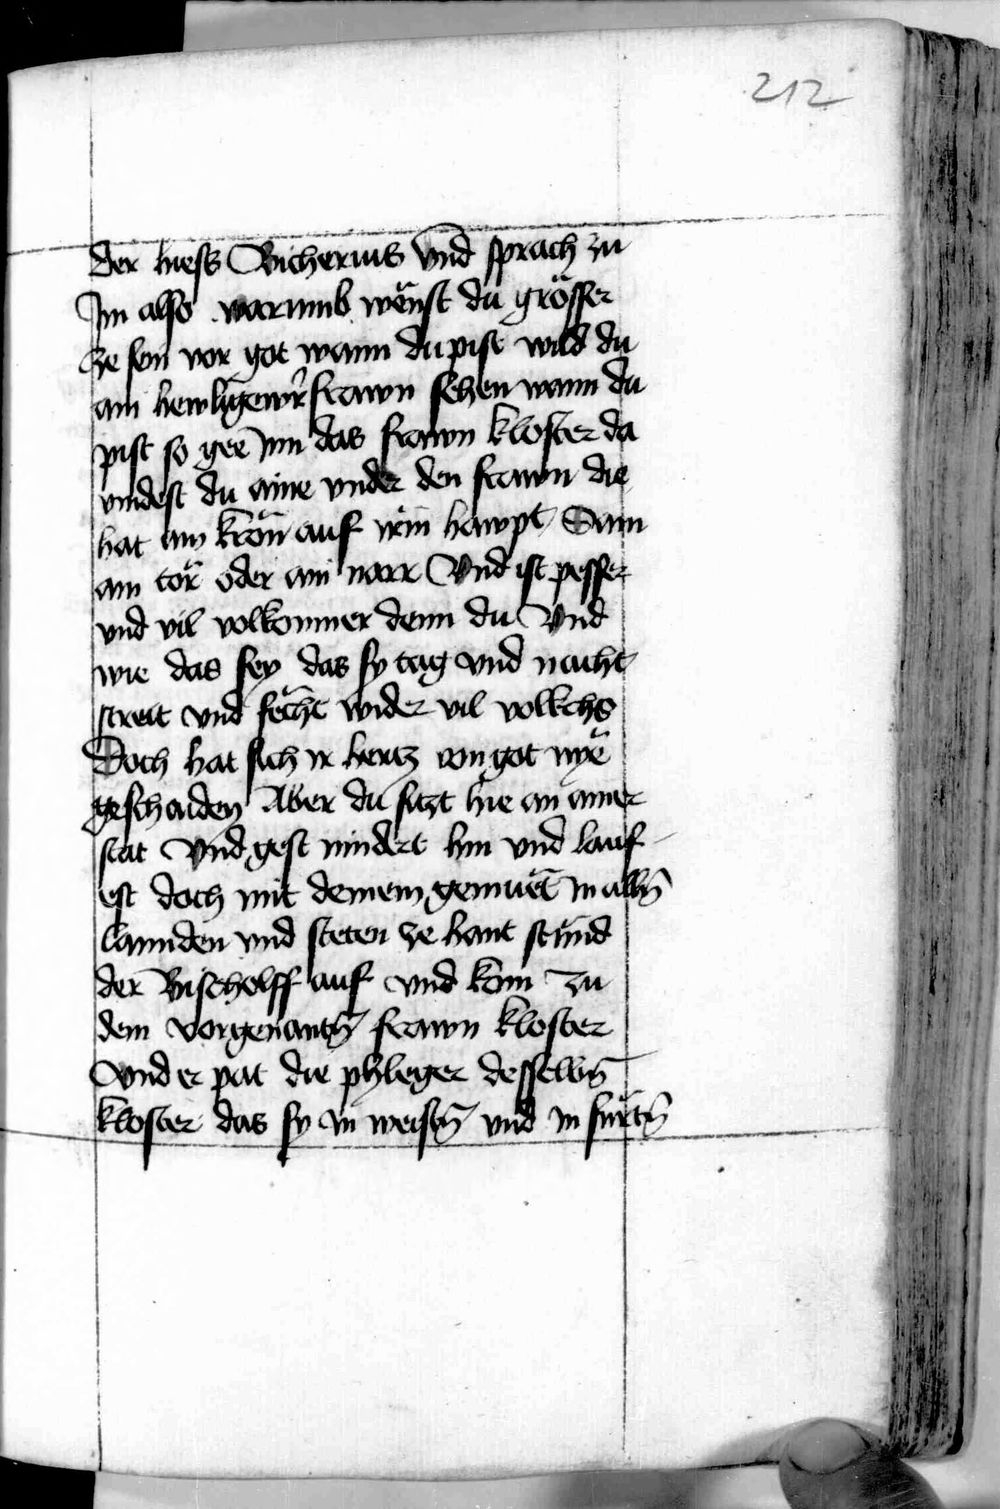 212
der hiess Bicherius Vnd sprach zu
Im also . warumb wënst du grösser
ze sein vor got wann du pist wild du
ain frawn sehen wann du
pist so gee Inn das frawn kloster da
vindest du aine vnder den frawn die
hat ain kron auf irm hawpt Sam
ain tor oder ain narr Vnd ist pesser
vnd vil volkomner denn du Vnd
wie das sey das sy tag vnd nacht
streit vnd fecht wider vil volkchs
Doch hat sich ir hertz von got nye
geschaiden Aber du sitzt hie an ainer
stat Vnd gest nindert hin vnd lauf
est doch mit deinem gemuet in alln̄
lannden vnd steten ze hant stund
der Bischolff auf vnd kom zu
dem vorgenantn̄ frawn kloster
Vnd er pat die phleger desselbn̄
kloster das sy In weistn̄ vnd in furtn̄